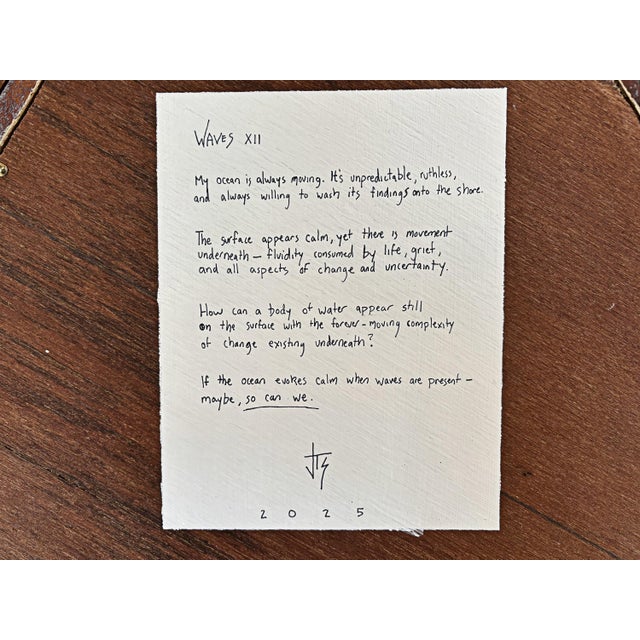 WAVES XII
My ocean is always moving. It's unpredictable, ruthless,
and always willing to wash its findings onto the shore.
The surface appears calm, yet there is movement
underneath – fluidity consumed by life, grief,
and all aspects of change and uncertainty.
How can a body of water appear still
on the surface with the forever-moving complexity
of change existing underneath?
If the ocean evokes calm when waves are present –
maybe, so can we.
JTS
2 0 2 5